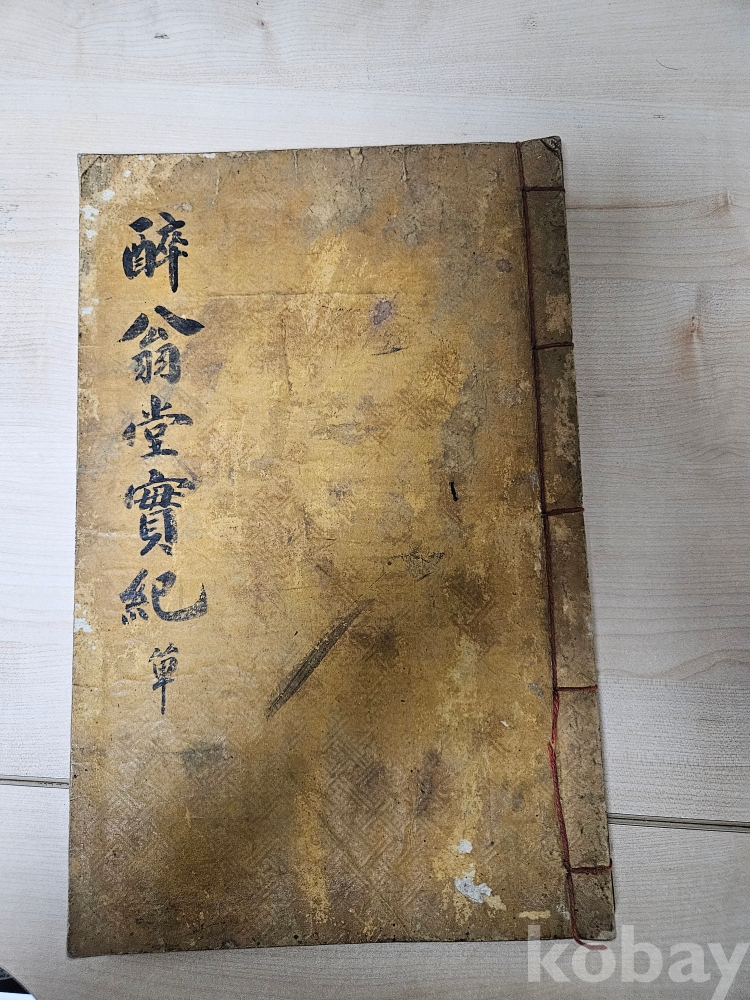 醉翁堂實紀 單
kobay